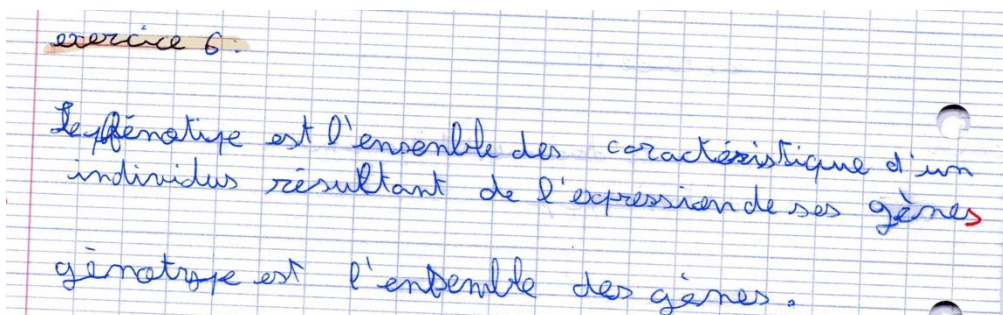 exercice 6:
Le phénotipe est l'ensenble des caractéristique d'un
individus résultant de l'expression de ses gènes
gènotype est l'ensemble des gènes.